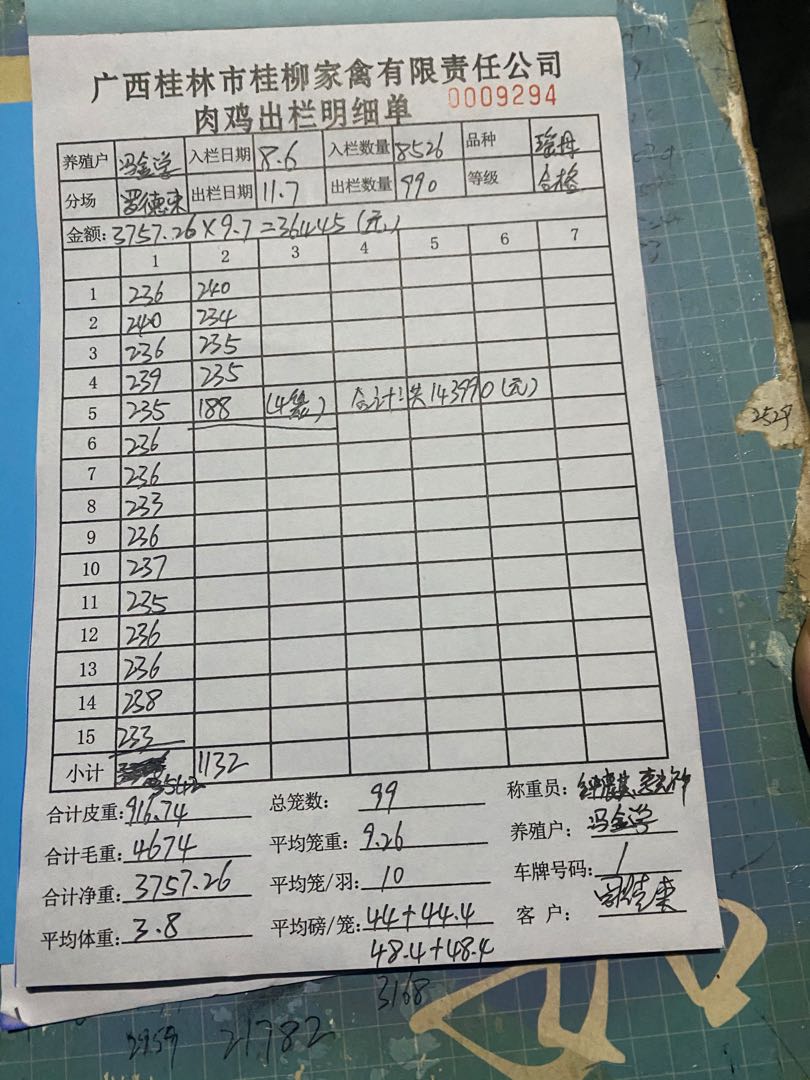 广西桂林市桂柳家禽有限责任公司
肉鸡出栏明细单 0009294
养殖户 冯金学 入栏日期 8.6 入栏数量 8526 品种 瑶丹
分场 罗德来 出栏日期 11.7 出栏数量 990 等级 合格
金额: 3757.26×9.7=36445(元)
1 2 3 4 5 6 7
1 236 240
2 240 234
3 236 235
4 239 235
5 235 188 (4笼) 合计:共143990(元)
6 236
7 236
8 233
9 236
10 237
11 235
12 236
13 236
14 238
15 233
小计 3542 1132
合计皮重: 916.74 总笼数: 99 称重员:
合计毛重: 4674 平均笼重: 9.26 养殖户: 冯金学
合计净重: 3757.26 平均笼/羽: 10 车牌号码: /
平均体重: 3.8 平均磅/笼: 44+44.4 客 户:
48.4+48.4
3168
2959 21782
2529